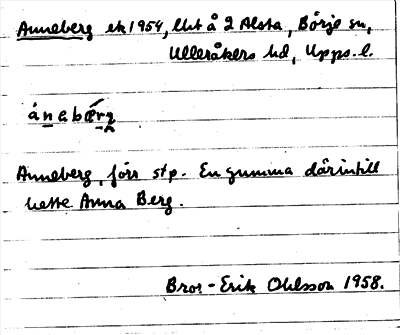 Anneberg ek 1954, lht å 2 Alsta, Börje sn,
Ulleråkers hd, Upps. l.
ánebærg
Anneberg, förr stp. En gumma därintill
hette Anna Berg.
Bror-Erik Ohlsson 1958.